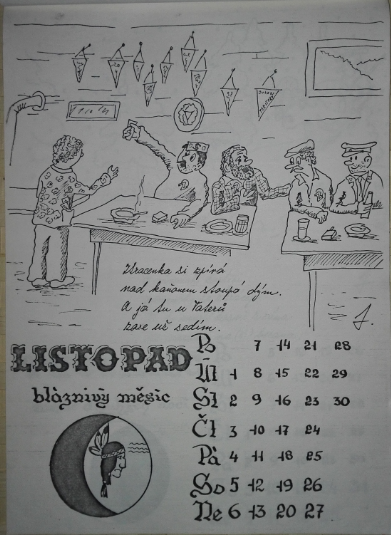 Vracenka si zpívá
nad kaňonem stoupá dým.
A já tu u Taterů
zase už sedím.
LISTOPAD
bláznivý měsíc
Po 7 14 21 28
Út 1 8 15 22 29
St 2 9 16 23 30
Čt 3 10 17 24
Pá 4 11 18 25
So 5 12 19 26
Ne 6 13 20 27